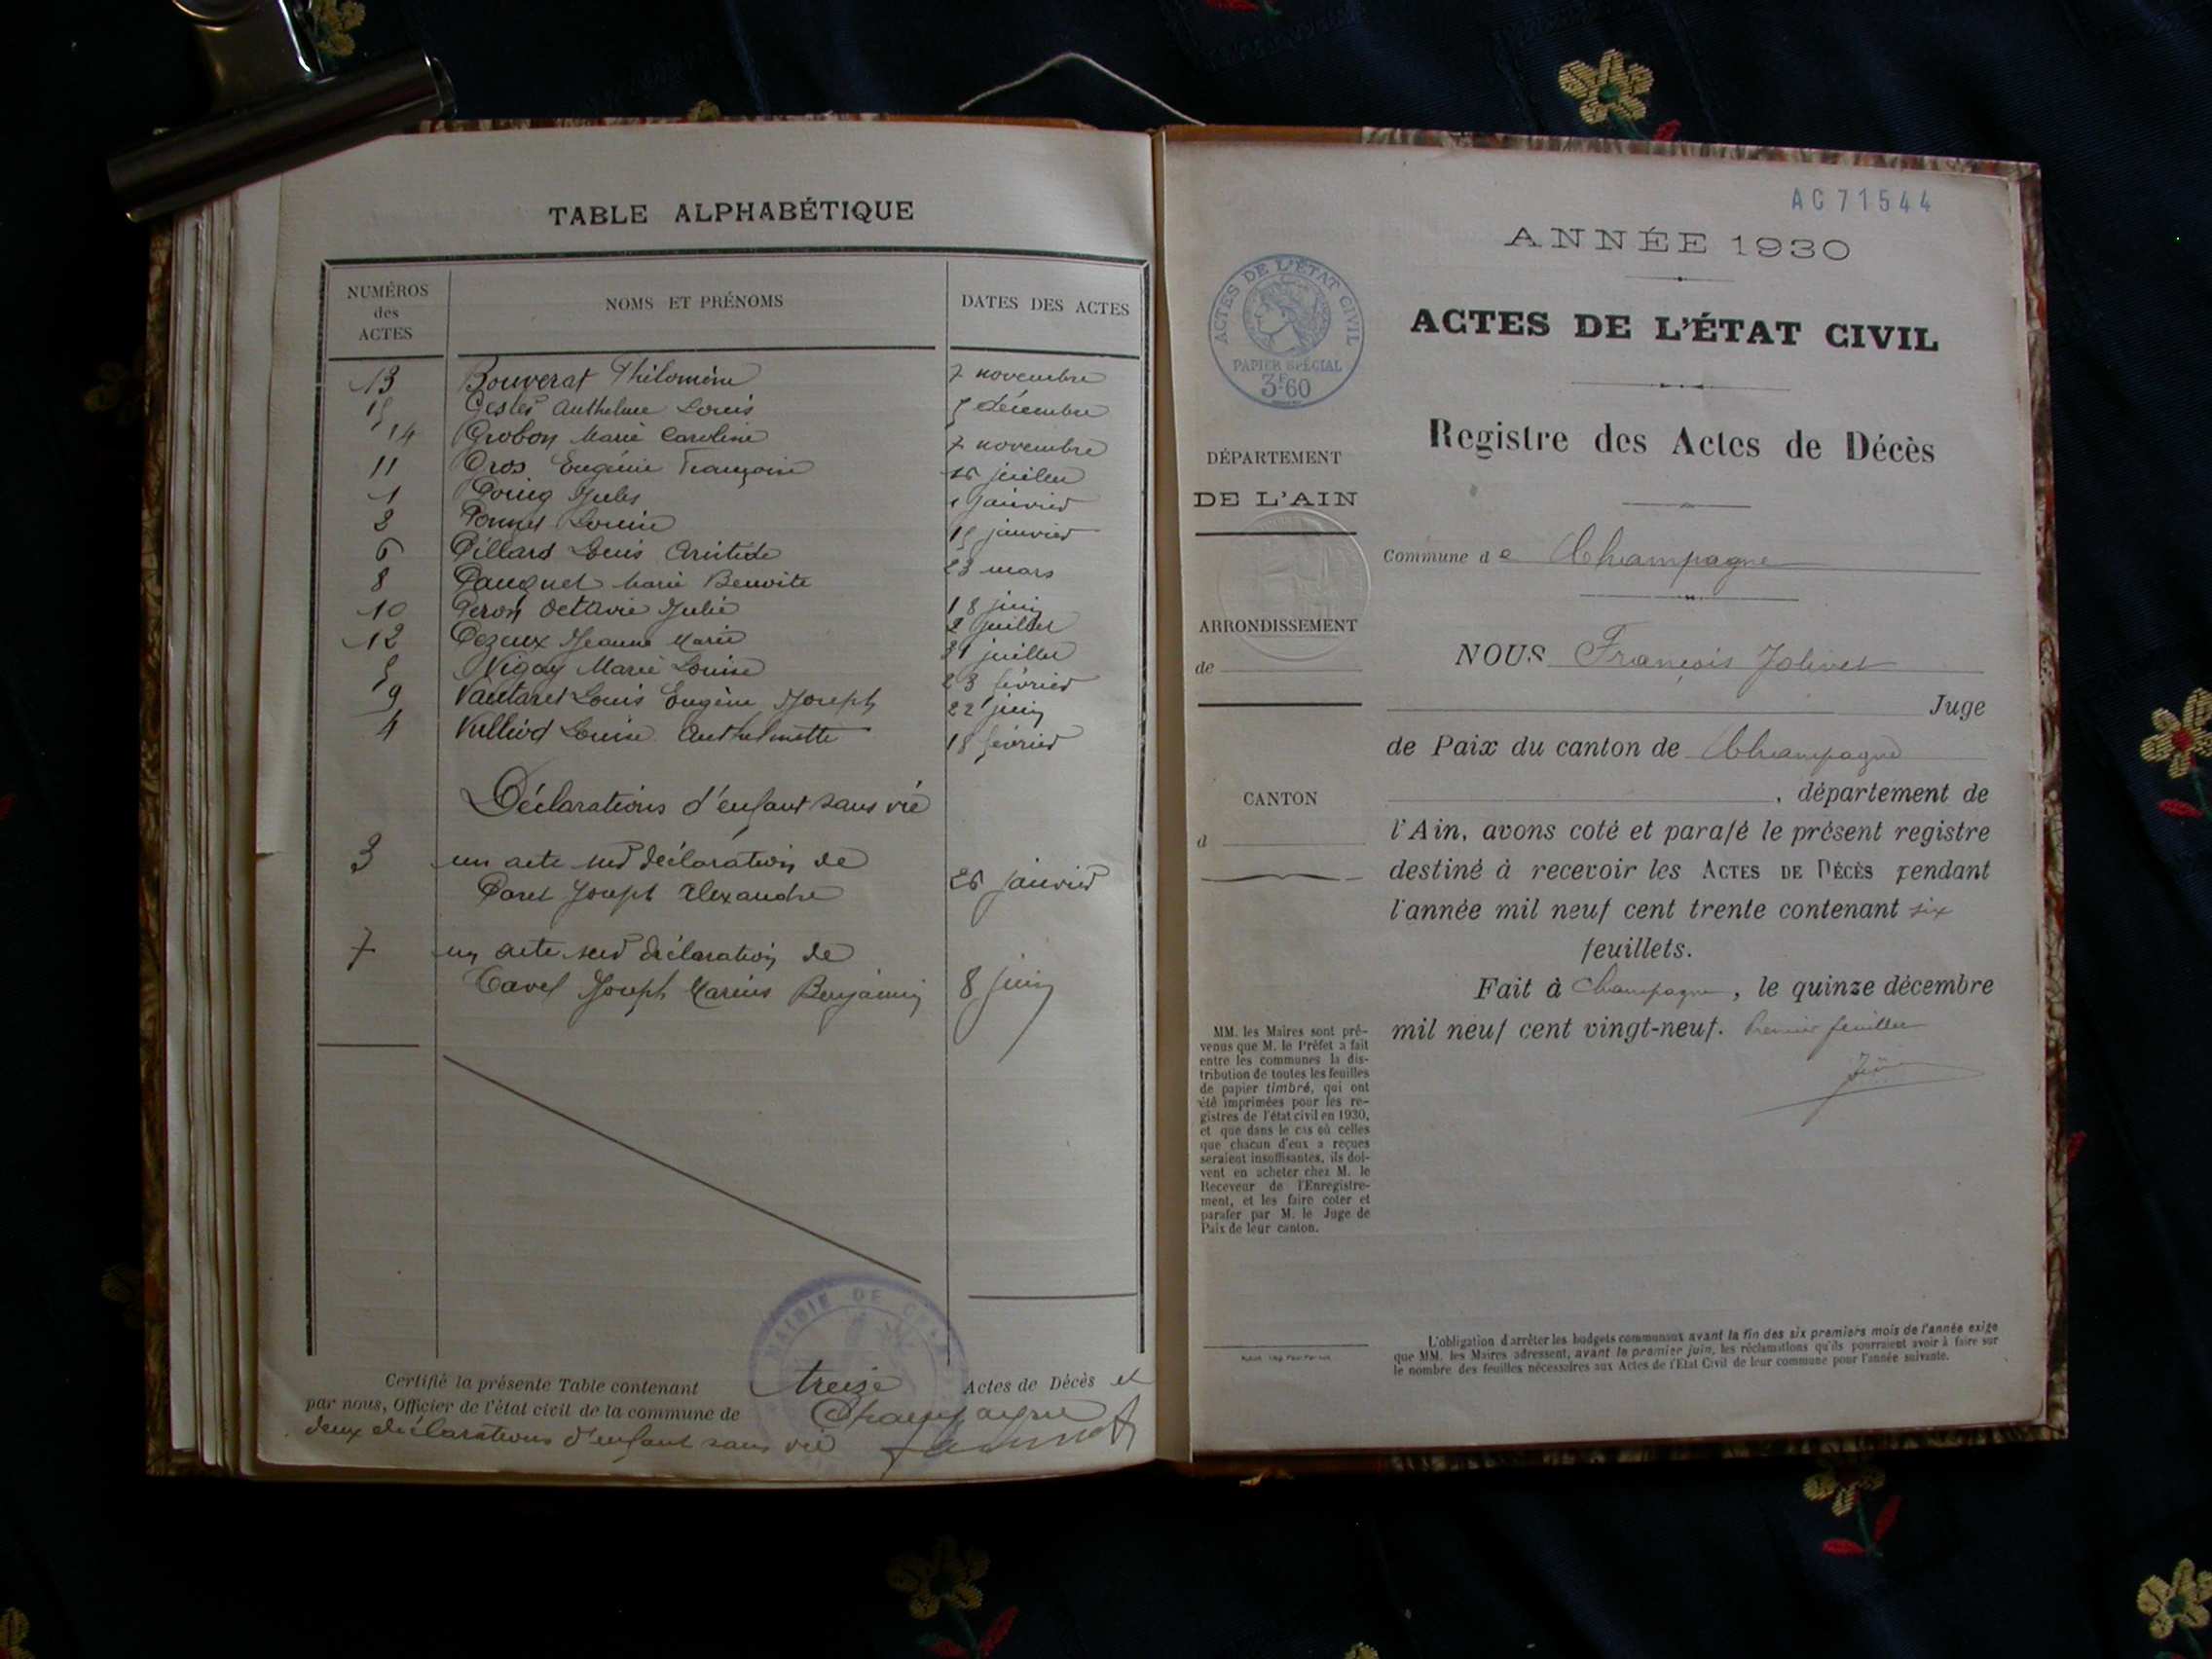 TABLE ALPHABÉTIQUE
NUMÉROS des ACTES
NOMS ET PRÉNOMS
DATES DES ACTES
13 Bouverat Philomène 7 novembre
15 Anthelme Louis 5 décembre
14 Grobon Marie Caroline 7 novembre
11 Gros Eugénie Françoise 16 juillet
1 Jules 1 janvier
2 Louise 15 janvier
6 Pillard Louis Aristide 23 mars
8 Marie Benoite 18 juin
10 Peron Octavie Julie 2 juillet
12 Pezeux Jeanne Marie 31 juillet
5 Vigoy Marie Louise 23 février
9 Vautaret Louis Eugène Joseph 22 juin
4 Vulliod Louise Anthelmette 18 février
Déclarations d'enfant sans vie
3 un acte sur déclaration de
Joseph Alexandre 26 janvier
7 un acte sur déclaration de
Cavel Joseph Marius Benjamin 8 juin
MAIRIE DE
Certifié la présente Table contenant treize Actes de Décès et
par nous, Officier de l'état civil de la commune de Champagne
deux déclarations d'enfant sans vie
AC71544
ANNÉE 1930
ACTES DE L'ÉTAT CIVIL
PAPIER SPÉCIAL
3F60
ACTES DE L'ÉTAT CIVIL
Registre des Actes de Décès
DÉPARTEMENT
DE L'AIN
Commune de Champagne
ARRONDISSEMENT
de
NOUS François Jolivet
Juge
de Paix du canton de Champagne
CANTON
d
, département de
l'Ain, avons coté et parafé le présent registre
destiné à recevoir les ACTES DE DÉCÈS pendant
l'année mil neuf cent trente contenant six
feuillets.
Fait à Champagne, le quinze décembre
mil neuf cent vingt-neuf. Premier feuillet
MM. les Maires sont pré-
venus que M. le Préfet a fait
entre les communes la dis-
tribution de toutes les feuilles
de papier timbré, qui ont
été imprimées pour les re-
gistres de l'état civil en 1930,
et que dans le cas où celles
que chacun d'eux a reçues
seraient insuffisantes, ils doi-
vent en acheter chez M. le
Receveur de l'Enregistre-
ment, et les faire coter et
parafer par M. le Juge de
Paix de leur canton.
L'obligation d'arrêter les budgets communaux avant la fin des six premiers mois de l'année exige
que MM. les Maires adressent, avant le premier juin, les réclamations qu'ils pourraient avoir à faire sur
le nombre des feuilles nécessaires aux Actes de l'État Civil de leur commune pour l'année suivante.